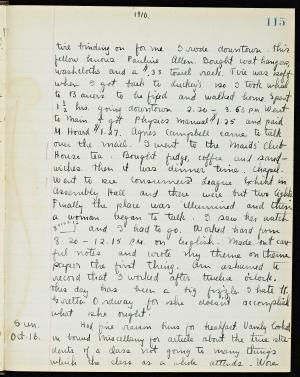 1910.
115
tire binding on for me I rode downtown. This
fellow knows Pauline Allen. Bought coat hangers,
washcloths and a $.33 towel rack. Tire was off
when I got back to so I took wheel
to to be fixed and walked home. Spent
1½ hrs. going downtown 2.20 - 3.50 P.M. Went
to Main & got Physics Manual $1.25 and paid
M. Hoard $1.27. Agnes Campbell came to talk
over the mail. I went to the Maids' Club
House tea. Bought fudge, coffee and sand-
wiches then it was dinner time. Chapel.
Went to see Consumers League Exhibit in
Assembly Hall and there were but two lights
Finally the place was illumined and then
a woman began to talk. I saw her watch
and I had to go. Worked hard from
8.20 - 12.15 P.M. on English. Made out care
ful notes and wrote my theme on theme
paper the first thing. Am ashamed to
record that I worked after twelve o'clock.
This day has been a big fizzle. I hate it.
Loretto Ordway for she doesn't accomplish
what she ought.
Sun.
Oct. 16.
Had five raisin buns for breakfast. Vainly looked
in bound Miscellany for article about the true stu-
dents of a class not going to many things
which the class as a whole attends. Wore